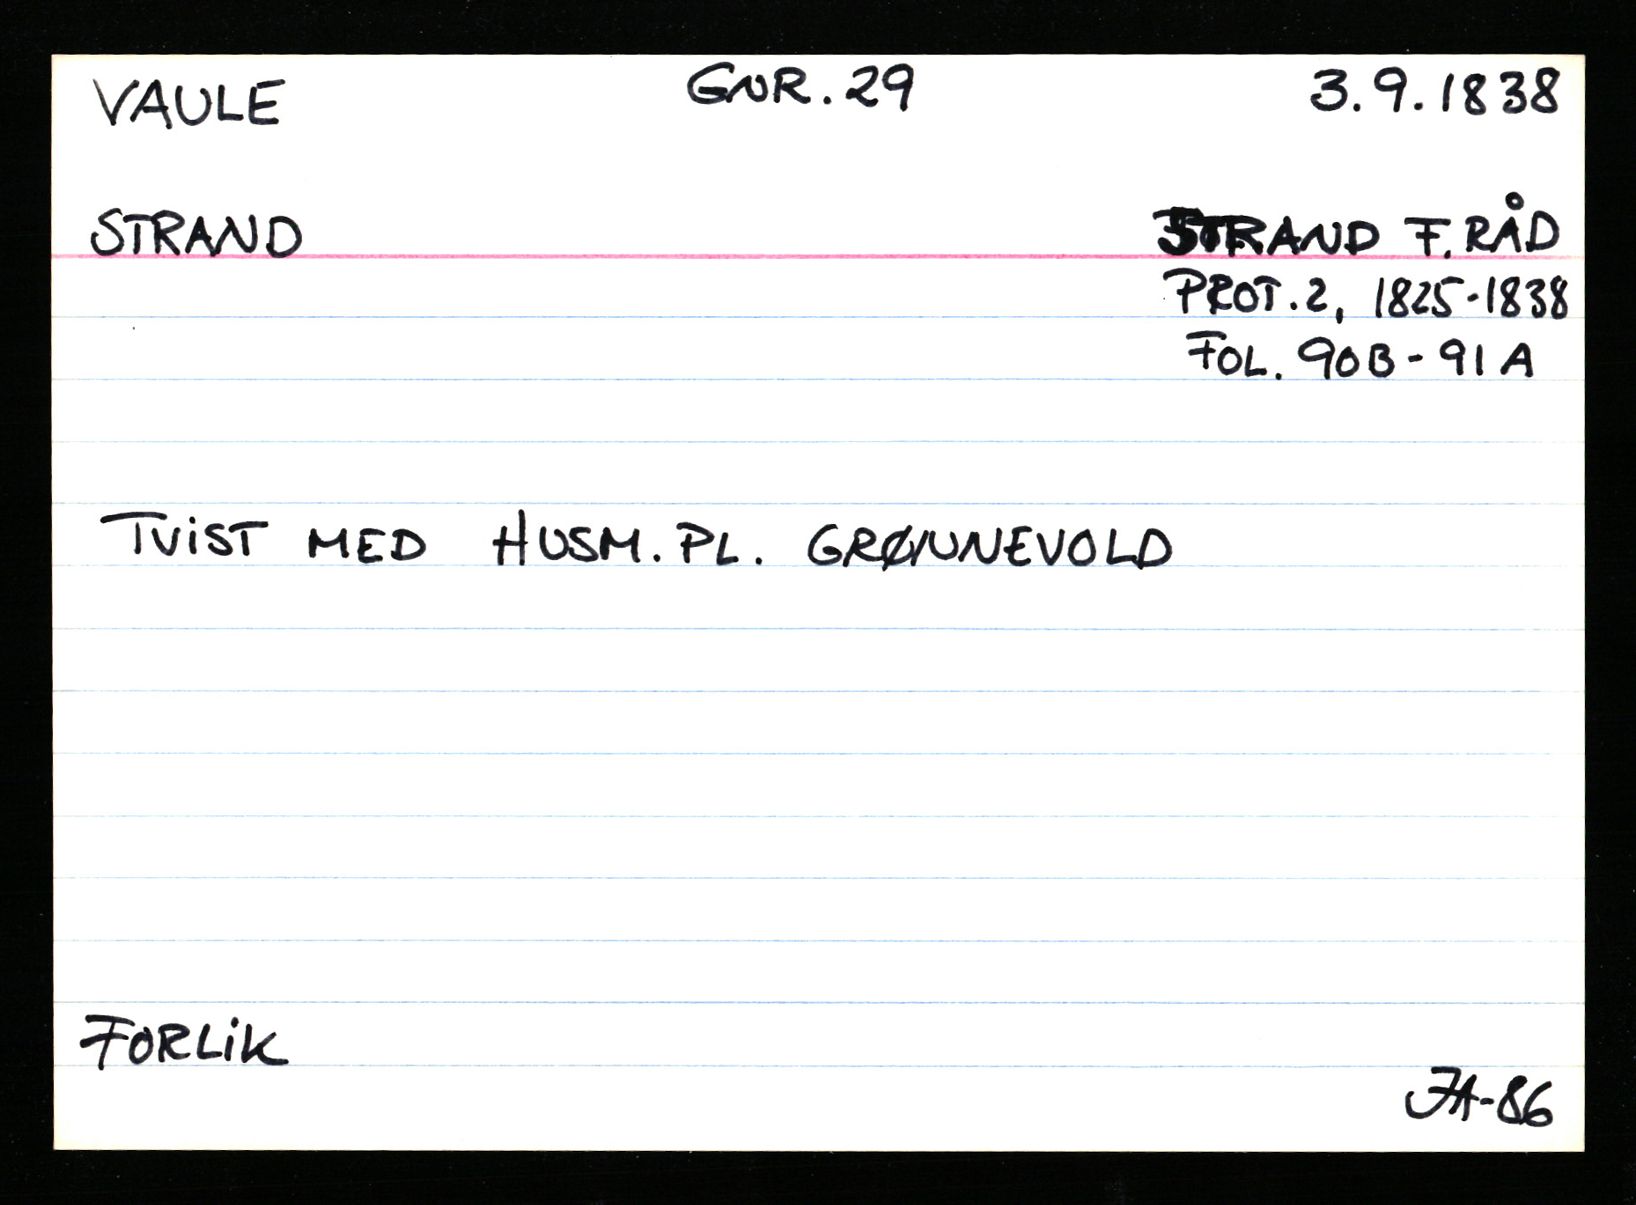 VAULE GNR. 29 3.9.1838
STRAND STRAND F. RÅD
PROT. 2, 1825-1838
FOL. 90B - 91A
TVIST MED HUSM. PL. GRØNNEVOLD
FORLIK
JA-86